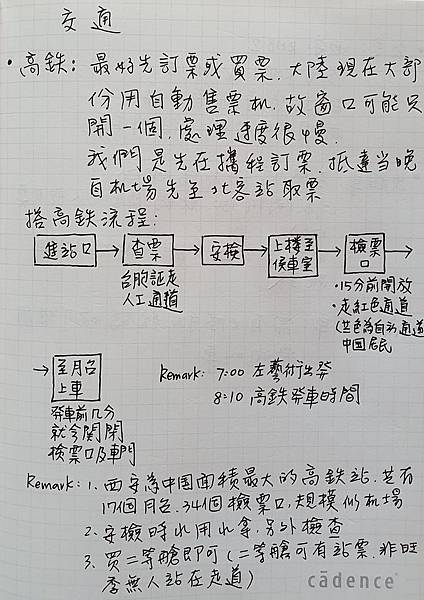 交通
• 高鉄: 最好先訂票或買票. 大陸現在大部
份用自動售票机, 故窗口可能只
開一個, 處理速度很慢.
我們是先在攜程訂票. 抵達当晚
自机場先至北客站取票
搭高鉄流程:
進站口 → 查票 → 安檢 → 上樓至候車室 → 檢票口 →
台胞証走
人工通道
• 15分前開放
• 走紅色通道
(藍色為自动通道
中国居民)
→ 至月台上車
發車前几分
就会関閉
檢票口及車門
Remark: 7:00 左藝術出發
8:10 高鉄發車時間
Remark: 1. 西安為中国面積最大的高鉄站. 共有
17個月台. 34個檢票口, 規模似机場
2. 安檢時水用水拿, 另外檢查
3. 買二等艙即可 (二等艙可有站票. 非旺
季無人站在走道)
cādence